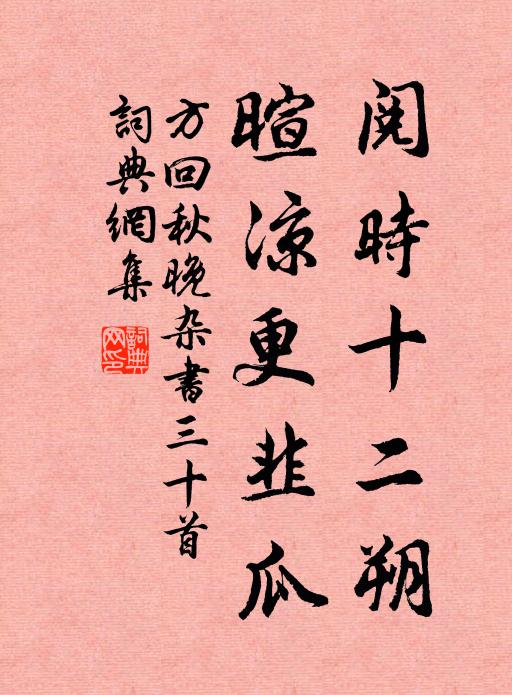 閱時十二朔
暄涼更韭瓜
方回秋晚杂書三十首
詞典網集
詞典网印